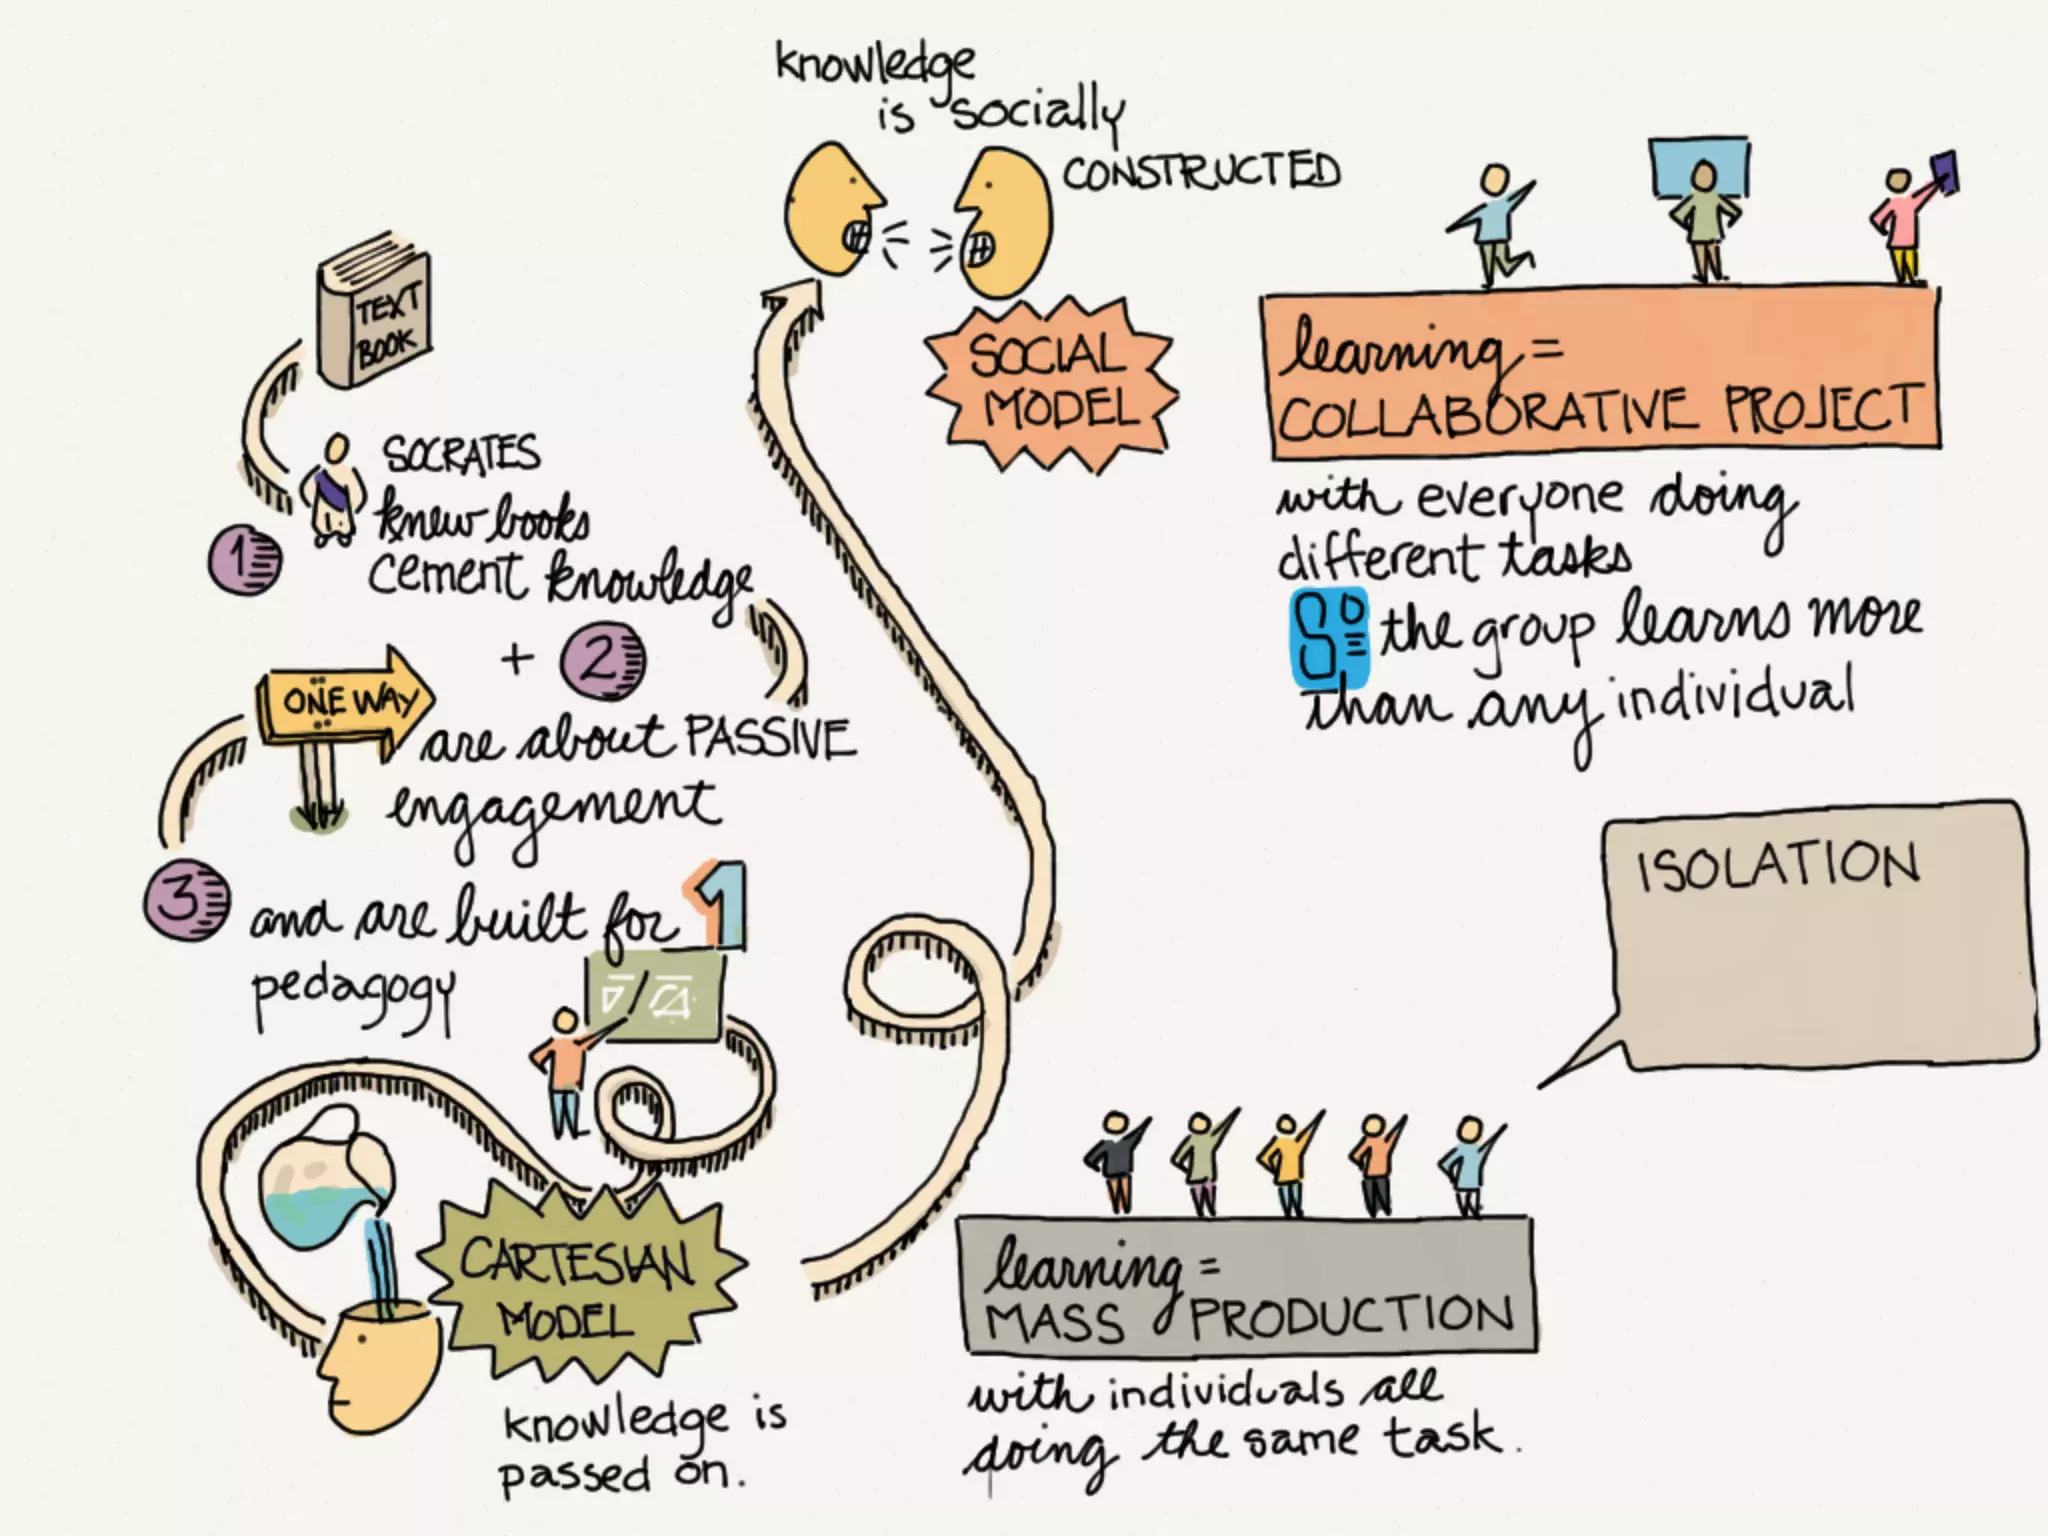 knowledge
is socially
CONSTRUCTED
SOCIAL
MODEL
learning =
COLLABORATIVE PROJECT
with everyone doing
different tasks
So the group learns more
than any individual
TEXT
BOOK
1
SOCRATES
knew books
cement knowledge
+ 2
ONE WAY
are about PASSIVE
engagement
3
and are built for 1
pedagogy
CARTESIAN
MODEL
knowledge is
passed on.
ISOLATION
learning =
MASS PRODUCTION
with individuals all
doing the same task.